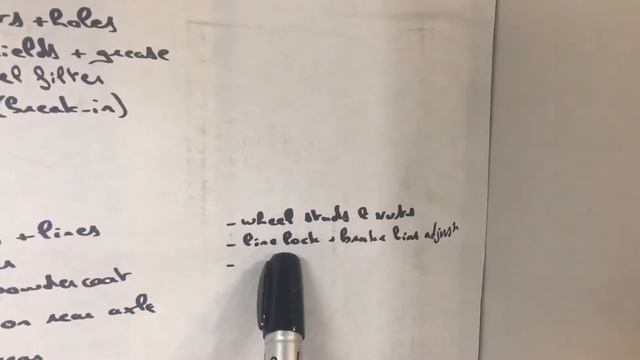 rs + holes
ields + grease
el filter
(break-in)
+ lines
powdercoat
on rear axle
- wheel studs & nuts
- line lock + brake bias adjust
-